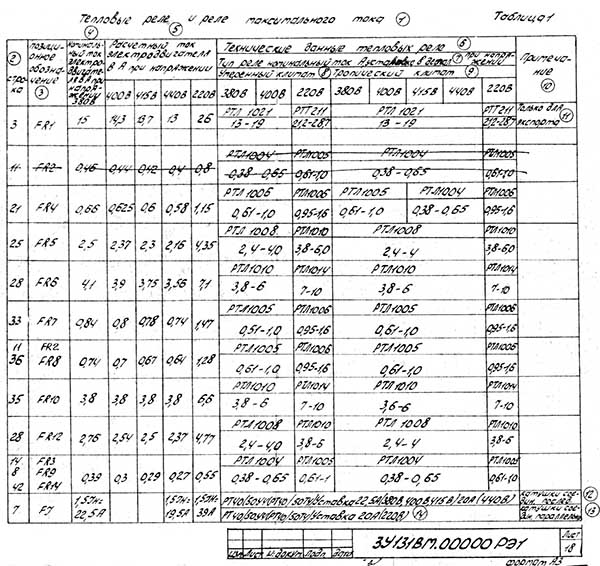 Тепловые реле и реле максимального тока ①
Таблица 1
② строка
позиционное обозначение ③
④ номинальный ток электродвигателя в А при напряжении 380В
⑤ Расчетный ток электродвигателя в А при напряжении
400В 415В 440В 220В
Технические данные тепловых реле ⑥
Тип реле номинальный ток А уставка ⑦ при напряжении
Умеренный климат ⑧ Тропический климат ⑨
380В 400В 220В 380В 400В 415В 440В 220В
Примечание ⑩
РТЛ 1021 РТТ211 РТЛ 1021 РТТ211
3 FR1 15 14,3 13,7 13 26 13-19 21,2-28,7 13-19 21,2-28,7 Только для экспорта ⑪
РТЛ1004 РТЛ1005 РТЛ1004 РТЛ1005
11 FR2 0,46 0,44 0,42 0,4 0,8 0,38-0,65 0,61-1,0 0,38-0,65 0,61-1,0
РТЛ1006 РТЛ1006 РТЛ1005 РТЛ1004 РТЛ1006
21 FR4 0,66 0,625 0,6 0,58 1,15 0,61-1,0 0,95-1,6 0,61-1,0 0,38-0,65 0,95-1,6
РТЛ 1008 РТЛ1010 РТЛ1008 РТЛ1010
25 FR5 2,5 2,37 2,3 2,16 4,35 2,4-4,0 3,8-6,0 2,4-4 3,8-6,0
РТЛ1010 РТЛ1014 РТЛ1010 РТЛ1014
28 FR6 4,1 3,9 3,75 3,56 7,1 3,8-6 7-10 3,8-6 7-10
РТЛ1005 РТЛ1006 РТЛ1005 РТЛ1006
33 FR7 0,84 0,8 0,78 0,74 1,47 0,51-1,0 0,95-1,6 0,61-1,0 0,95-1,6
11 FR2 РТЛ1005 РТЛ1006 РТЛ1005 РТЛ1006
36 FR8 0,74 0,7 0,67 0,64 1,28 0,61-1,0 0,95-1,6 0,61-1,0 0,95-1,6
РТЛ1010 РТЛ1014 РТЛ1010 РТЛ1014
35 FR10 3,8 3,8 3,8 3,8 6,6 3,8-6 7-10 3,6-6 7-10
РТЛ1008 РТЛ1010 РТЛ 1008 РТЛ1010
28 FR12 2,76 2,54 2,5 2,37 4,77 2,4-4,0 3,8-6 2,4-4 3,8-6
14 FR3 РТЛ1004 РТЛ1005 РТЛ1004 РТЛ1005
8 FR9 0,39 0,3 0,29 0,27 0,55 0,38-0,65 0,61-1 0,38-0,65 0,61-1,0
42 FR14
7 F7 1,5Iн= 22,5А 1,5Iн= 19,5А 1,5Iн= 39А
уставка 22,5А(380В,400В,415В)20А(440В) катушки соедин. послед. ⑫
Уставка 20А(220В) ⑭ катушки соедин. параллельно ⑬
Изм Лист N докум Подп Дата
3У131ВМ.00000.РЭ1
Лист
18
формат А3